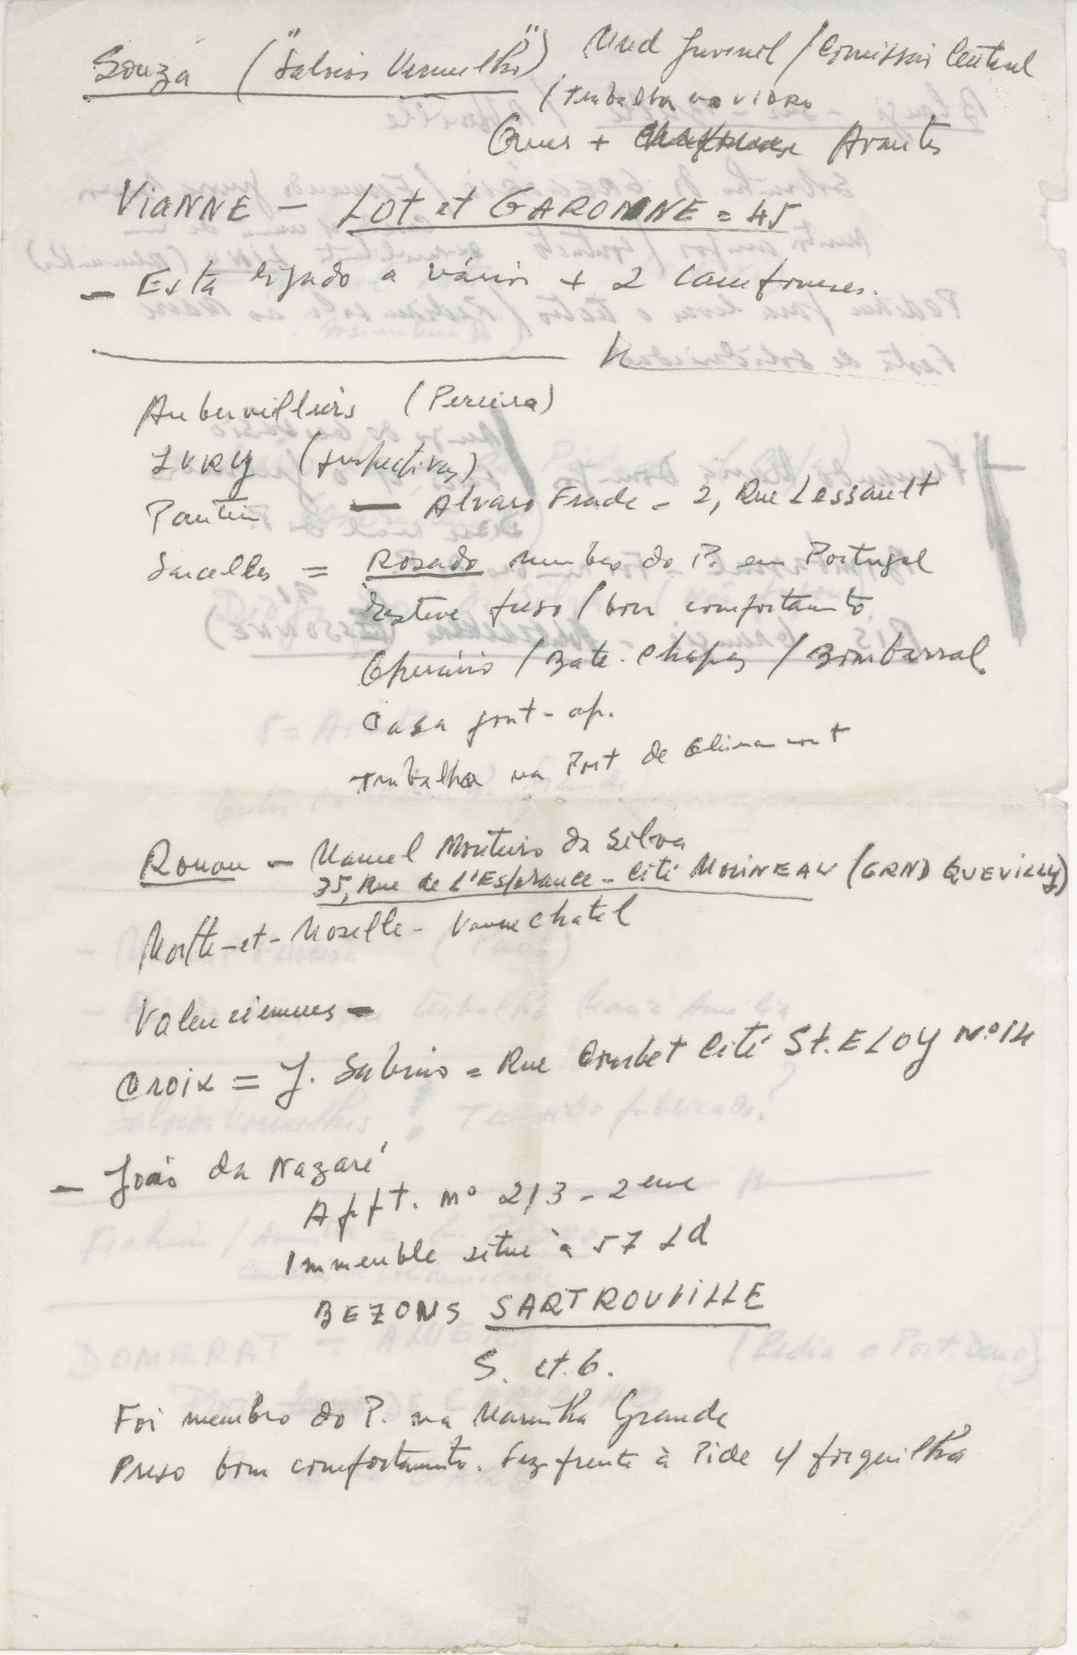 Souza ("Sabino Vermelho") Mud Juvenil / Comissão Central
/ trabalha no vidro
Quer + Avantes
VIANNE - LOT et GARONNE = 45
- Está ligado a vários + 2 camponeses.
Aubervilliers (Pereira)
IVRY (perspectivas)
Pantin - Alvaro Frade - 2, Rue Lessault
Sarcelles = Rosado membro do P. em Portugal
Esteve preso / bom comportamento
Operário / Bate-chapas / Bombarral
Casa port-ap.
Trabalha na Port de Clinancourt
Rouau - Manuel Monteiro da Silva
35, Rue de L'Esperance - Cité MOLINEAU (GRND QUEVILLY)
-et-Moselle -
Valenciennes -
CROIX = J. Sabino = Rue Cité St. ELOY Nº 14
- João da Nazaré
Appt. Nº 213 - 2eme
Immeuble situé à 57 Ld
BEZONS SARTROUVILLE
S. et. O.
Foi membro do P. na Marinha Grande
Preso bom comportamento. Fez frente à Pide c/ forquilha